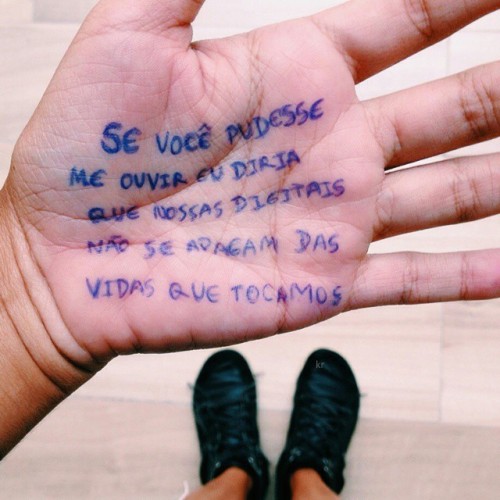 SE VOCÊ PUDESSE
ME OUVIR EU DIRIA
QUE NOSSAS DIGITAIS
NÃO SE APAGAM DAS
VIDAS QUE TOCAMOS
kr